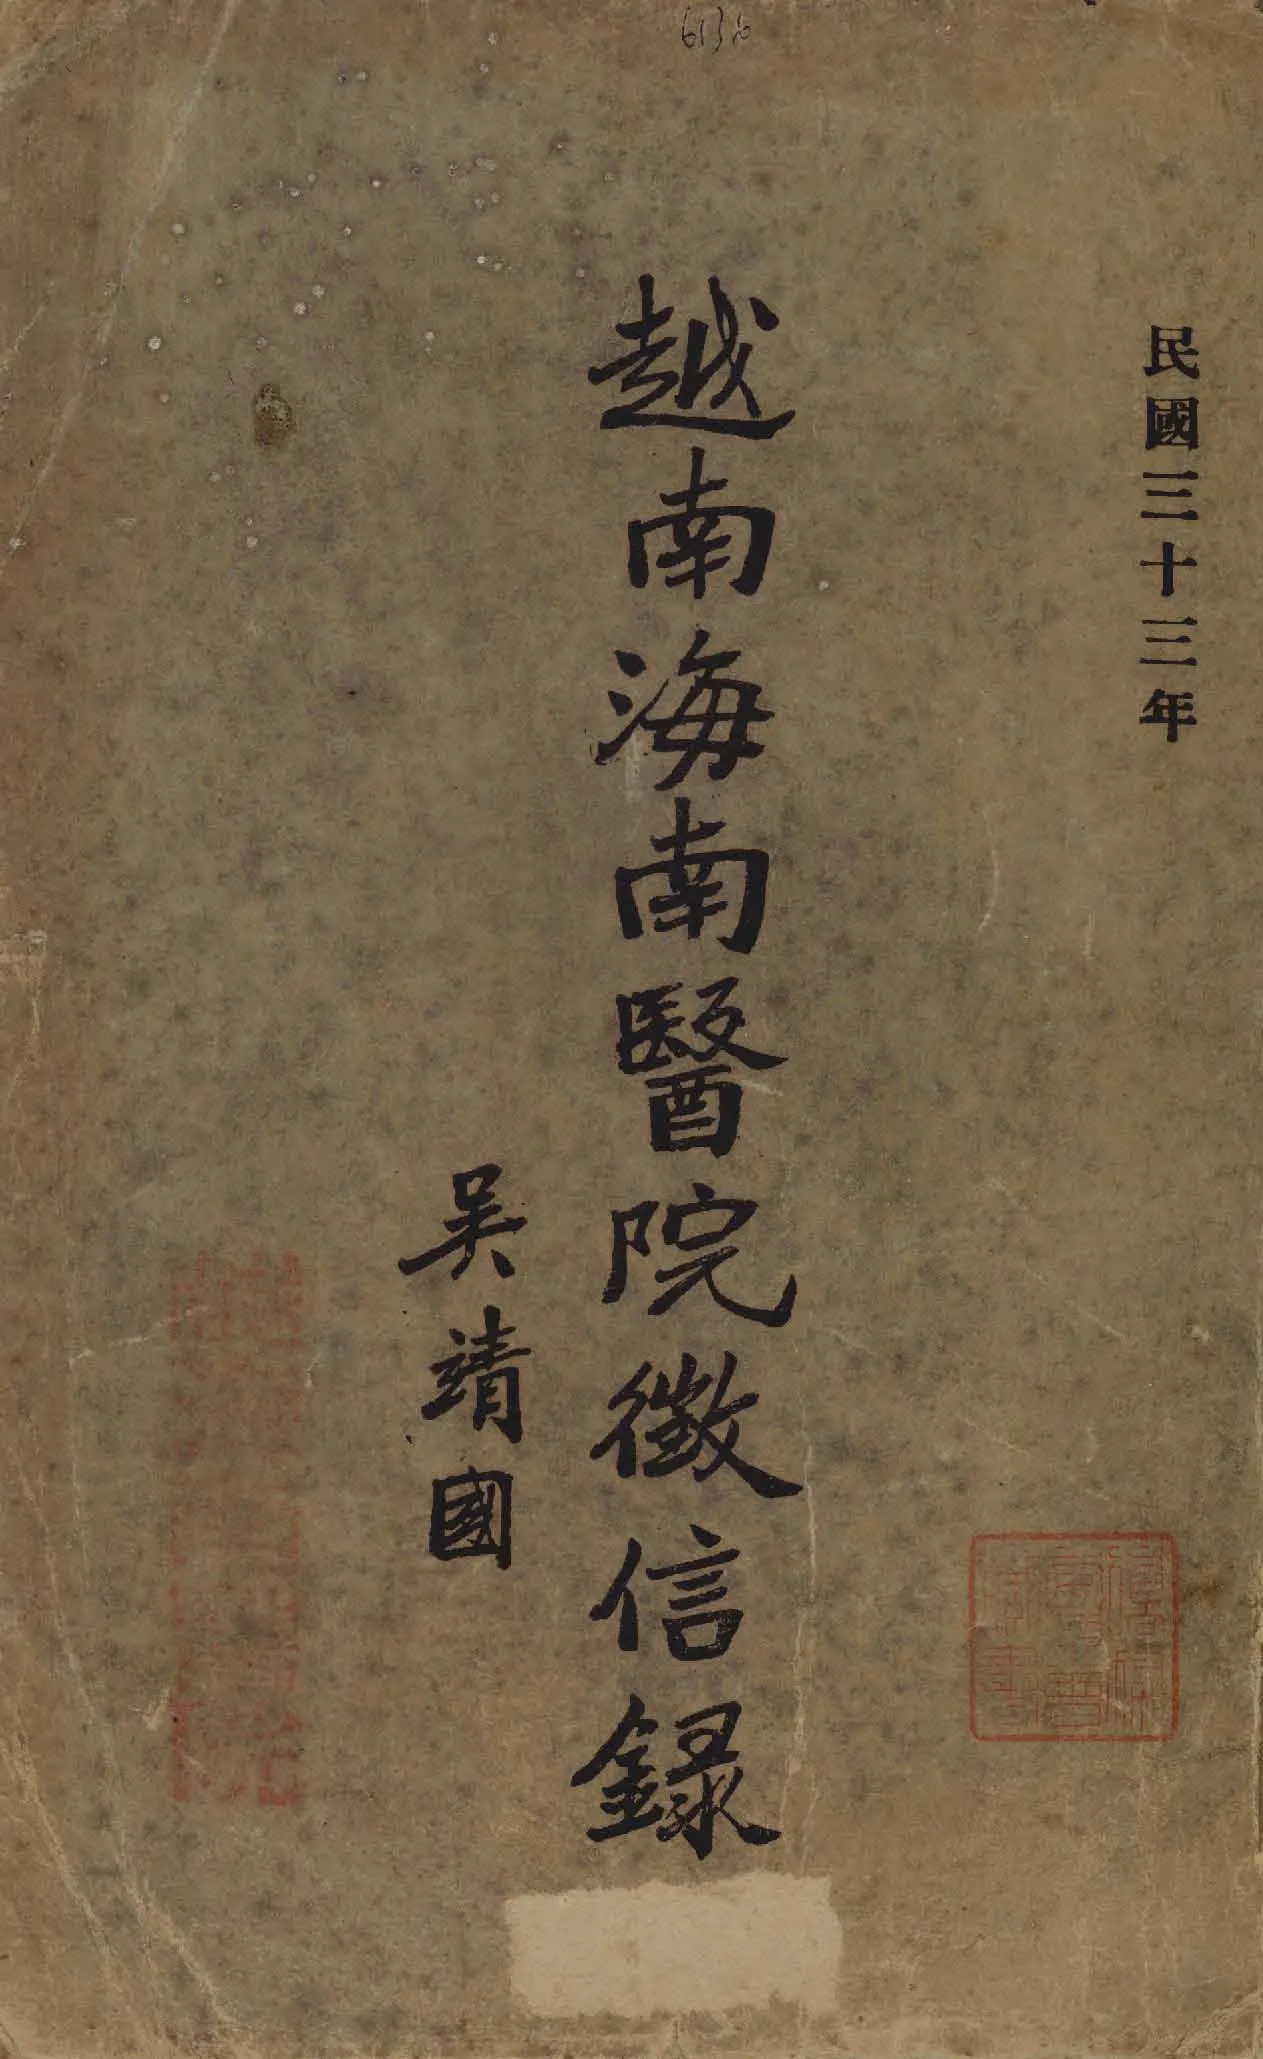 民國三十三年
越南海南醫院徵信錄
吳靖國